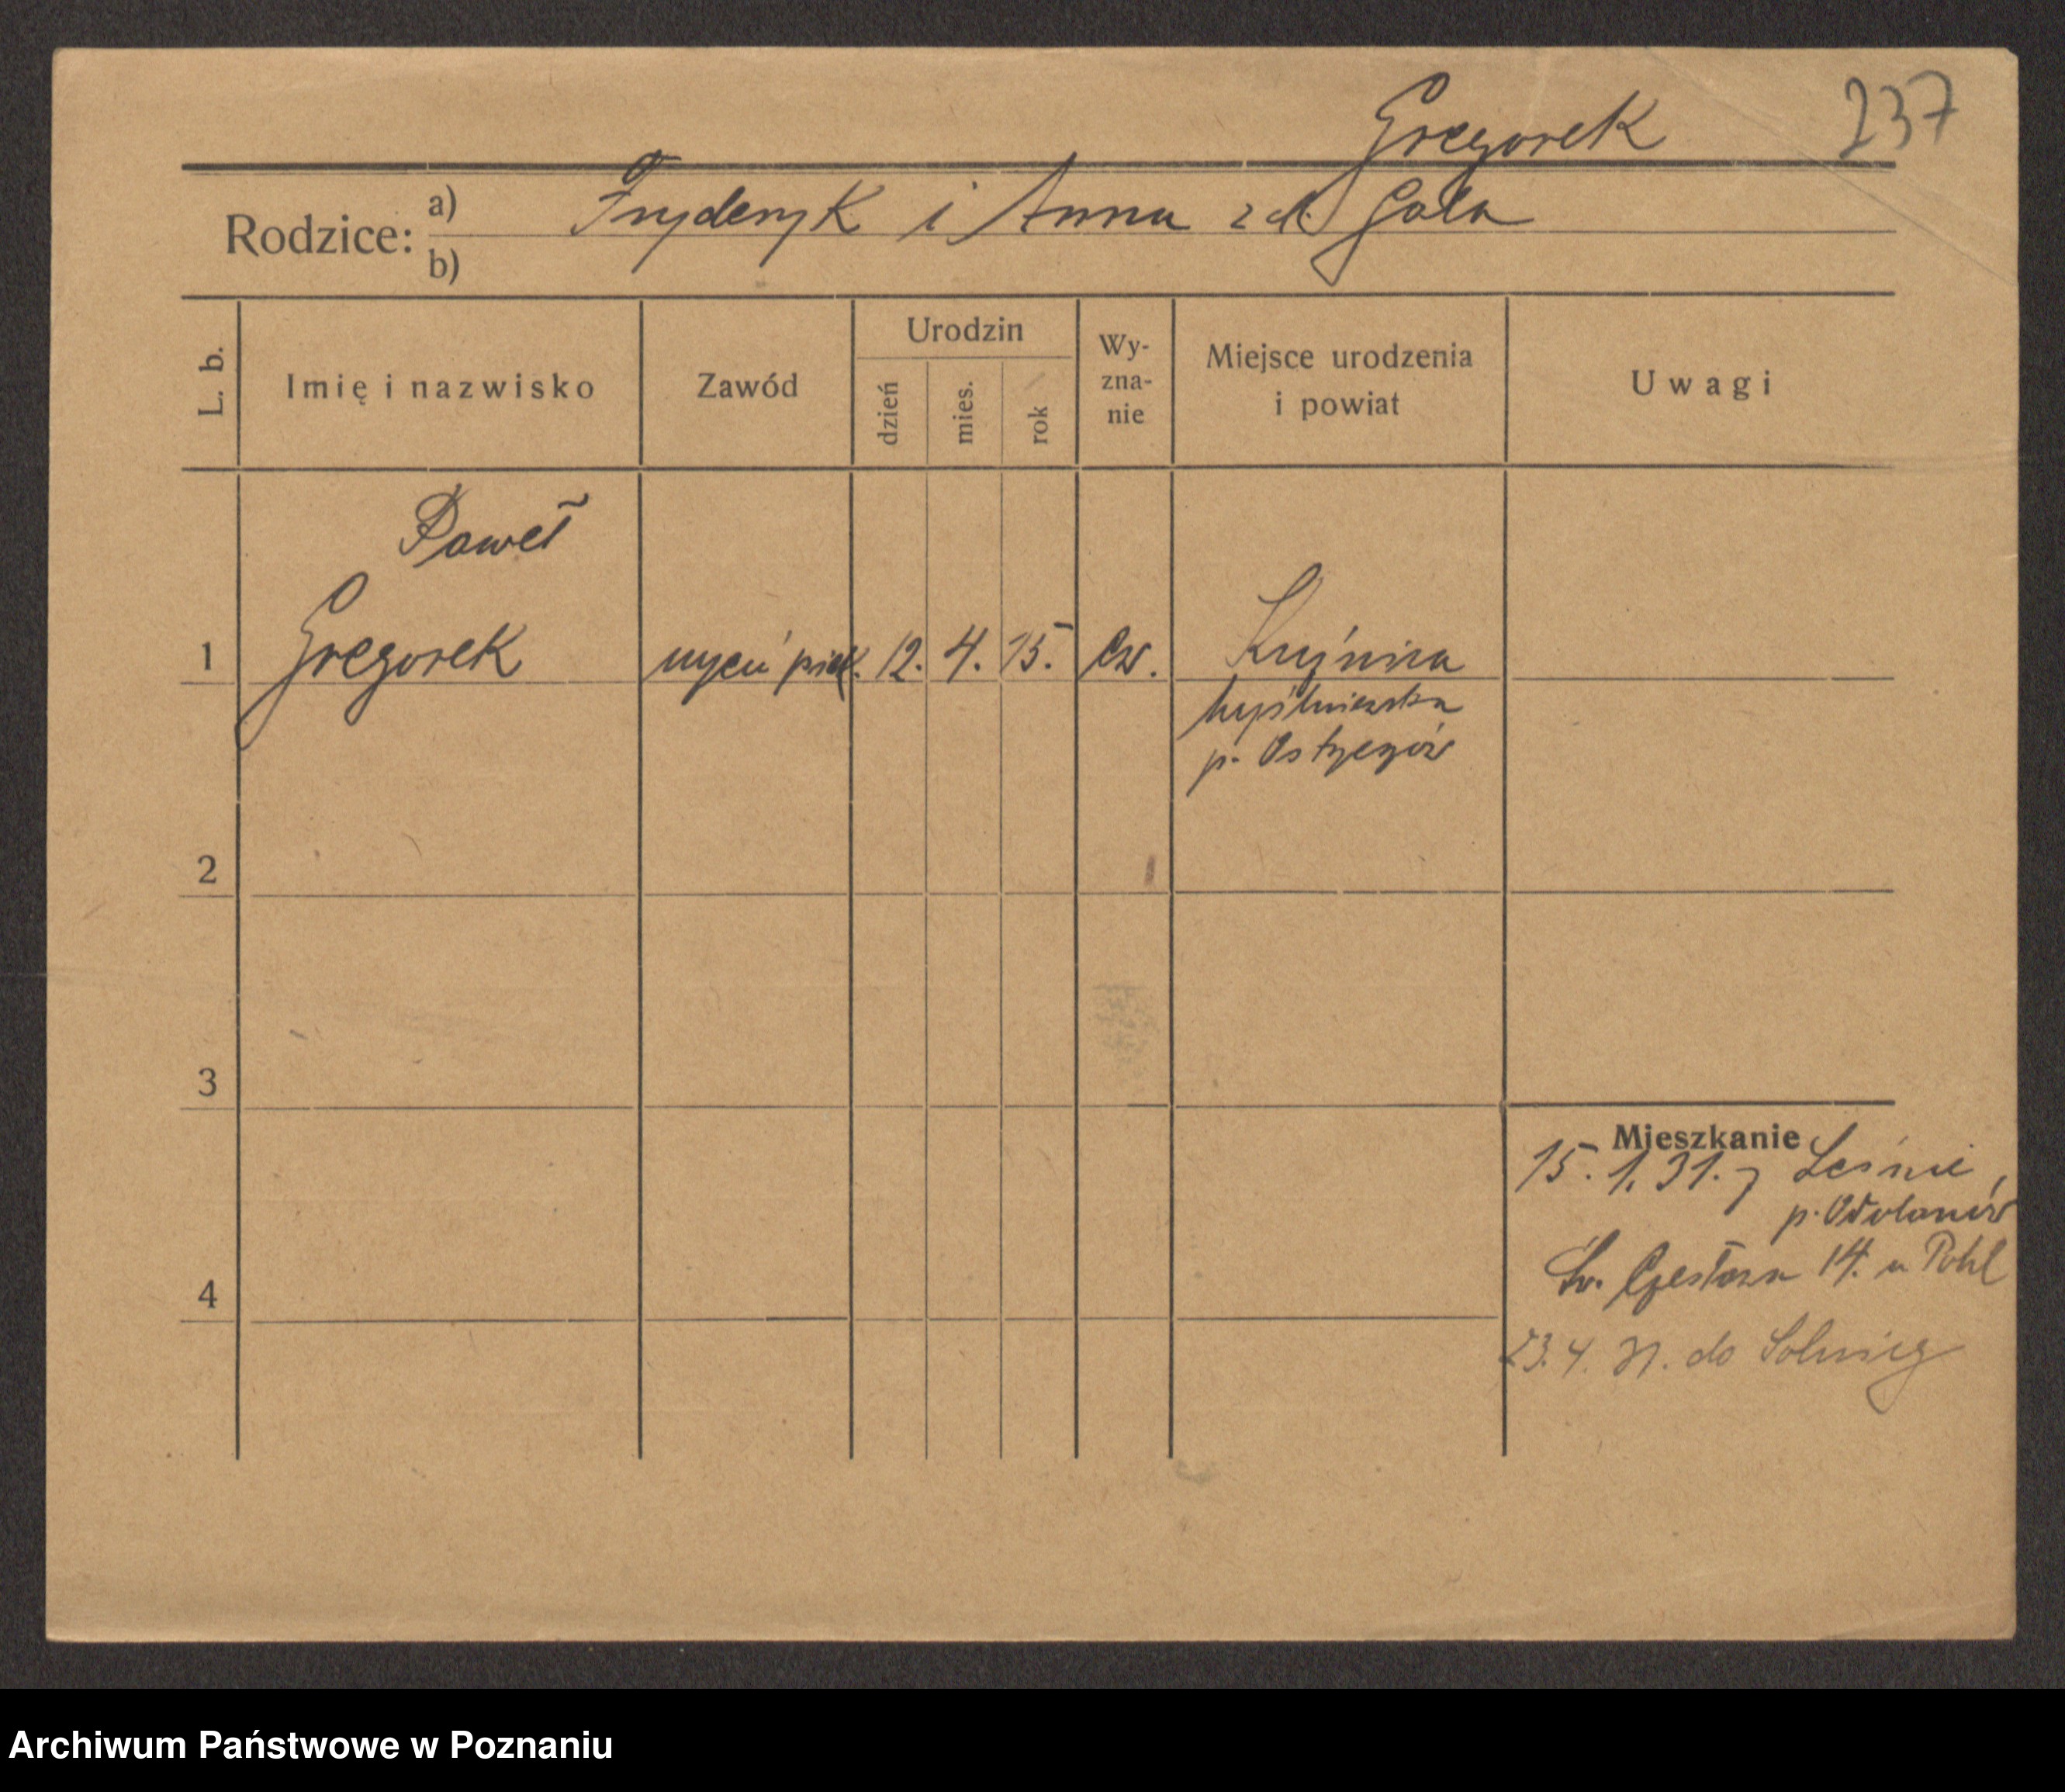 Gregorek 237
Rodzice: a) Fryderyk i Anna z d. Gala
b)
L. b. Imię i nazwisko Zawód Urodzin dzień mies. rok Wy-zna-nie Miejsce urodzenia i powiat Uwagi
Paweł
1 Gregorek uczeń piek. 12. 4. 15. ew. Kuźnica
Myślniewska
p. Ostrzeszów
2
3
Mieszkanie
15. 1. 31. z Leśnie,
p. Odolanów
Św. Czesława 14. u Pohl
4
23. 4. 31. do
Archiwum Państwowe w Poznaniu